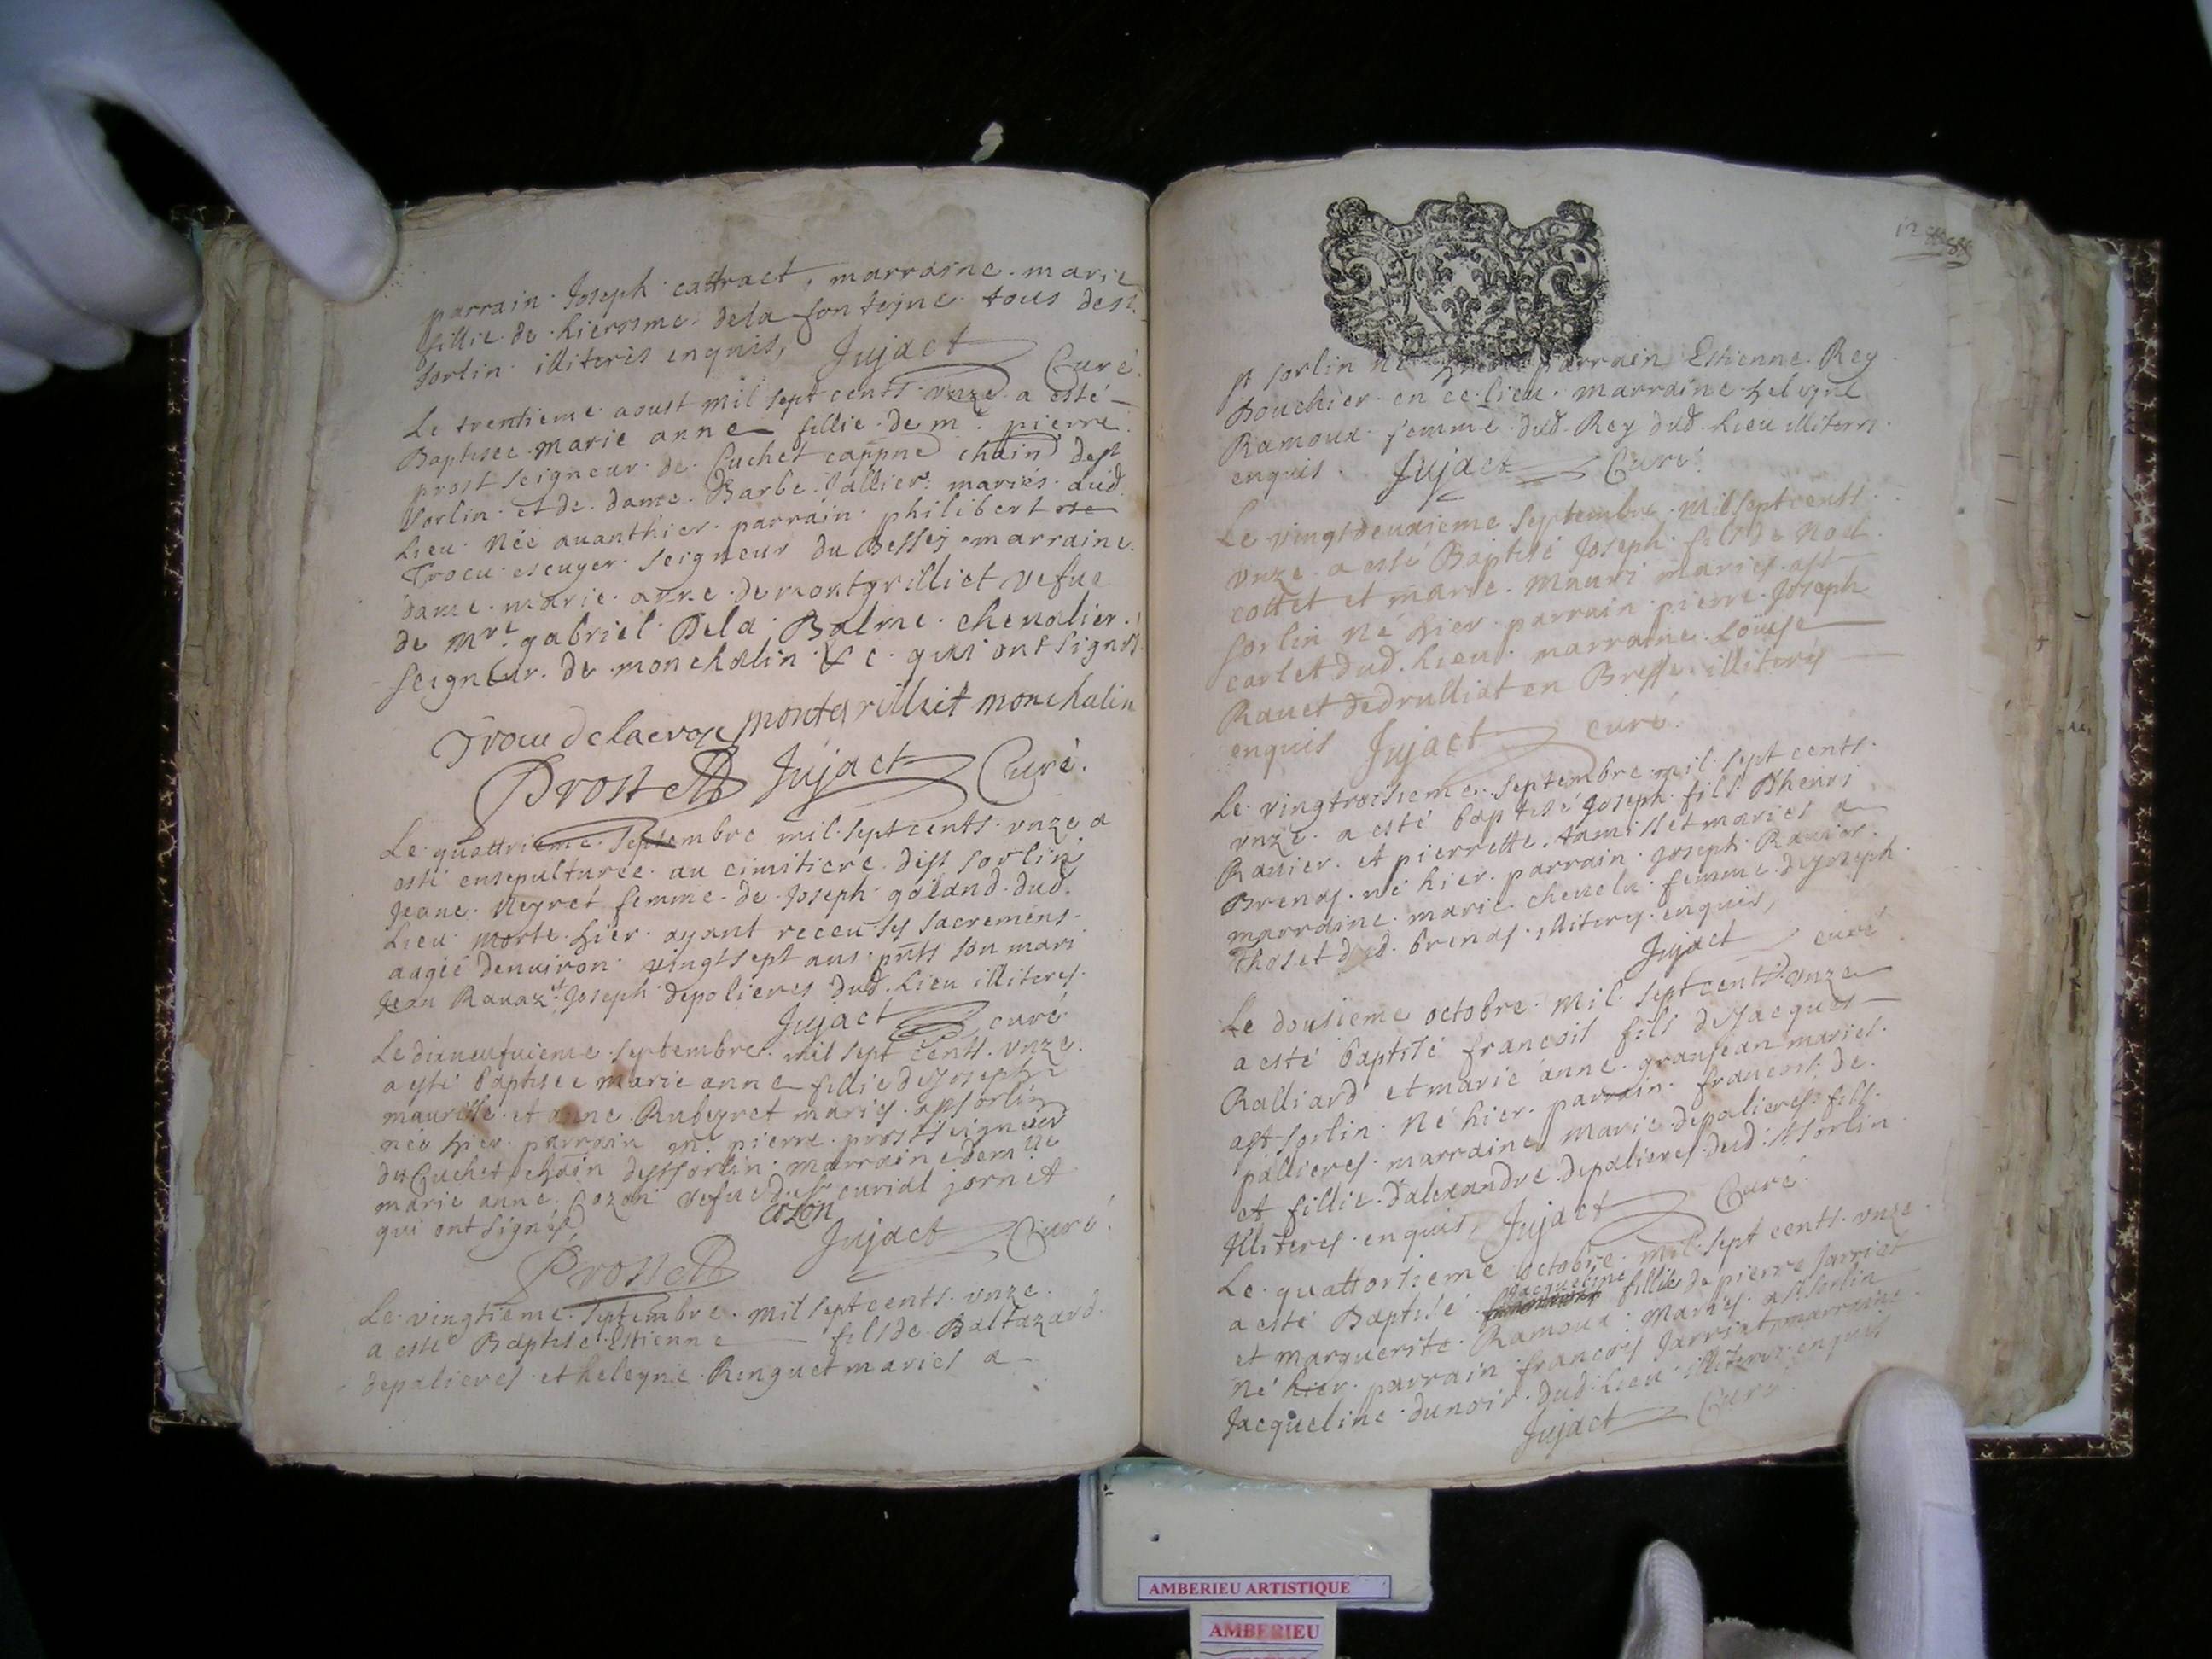 parrain Joseph cattract, marraine marie
fillie de hierosme dela fonteyne tous de st
Sorlin illiteris enquis, Jujact Curé
Le trentieme aoust mil sept cents unze a esté
Baptisee marie anne fillie de m. pierre
prost seigneur de Cuchet cappne chain de st
Sorlin et de dame Barbe Jallier mariés aud
Lieu Née auanthier parrain philibert
Trocu escuyer seigneur du Bessey marraine
dame marie anne de montgrilliet vefue
de mre gabriel De la Balme chevalier
Seigneur de monchalin & c. qui ont signés
Trocu delacroze montgrilliet monchalin
Prost Jujact Curé.
Le quattrieme Septembre mil sept cents unze a
esté ensepulturée au cimitiere de st Sorlin
Jeane Neyret femme de Joseph goland dud.
Lieu morte hier ayant receu ses sacremens
aagié denuiron vingtsept ans pnts son mari
Jean Rauaz et Joseph depolieres dud. Lieu illiteres.
Jujact curé
Le dixneufuieme septembre mil sept cents unze
a esté baptisee marie anne fillie de Joseph
maurisse et anne Rubeyret mariés a st sorlin
née hier parrain m. pierre prost seigneur
du Cuchet chain de st Sorlin marraine dem lle
marie anne Cozon vefue du sr curial jornet
qui ont signés, cozon
Jujact Curé.
Prost
Le vingtieme Septembre mil sept cents unze
a esté Baptisé Estienne fils de Baltazard
depalieres et heleyne Renguet mariés a
12
st sorlin né parrain Estienne Rey
Bouchier en ce Lieu marraine heleyne
Ramoux femme dud. Rey dud. Lieu illiteres
enquis. Jujact Curé
Le vingtdeuxieme Septembre mil sept cents
unze a esté Baptisé Joseph fils de Noel
cottet et marie mauri mariés a st
Sorlin Né hier parrain pierre Joseph
carlet dud. Lieu marraine Louyse
Rauet de druilliat en Bresse illiteres
enquis Jujact curé.
Le vingtroisieme septembre mil sept cents
unze a esté baptisé Joseph fils d'henri
Rauier et pierrette tamisset mariés a
Brenas né hier parrain Joseph Rauier
marraine marie cheuelu femme de Joseph
thoset dud. brenas illiteres enquis,
Jujact curé
Le dousieme octobre mil sept cents unze
a esté baptisé francois fils de Jacques
Ralliard et marie anne granjean mariés
a st sorlin Né hier parrain francois de
pallieres marraine marie depalieres fils
et fillie d'alexandre depalieres dud. st Sorlin
Illiteres enquis, Jujact Curé.
Le quattorsieme octobre mil sept cents unze
a esté Baptisé Jacqueline fillie de pierre Jarriat
et marguerite Ramoux mariés a st Sorlin
Né hier parrain francois Jarriat marraine
Jacqueline dunoir dud. Lieu illiteres enquis
Jujact Curé
AMBERIEU ARTISTIQUE
AMBERIEU